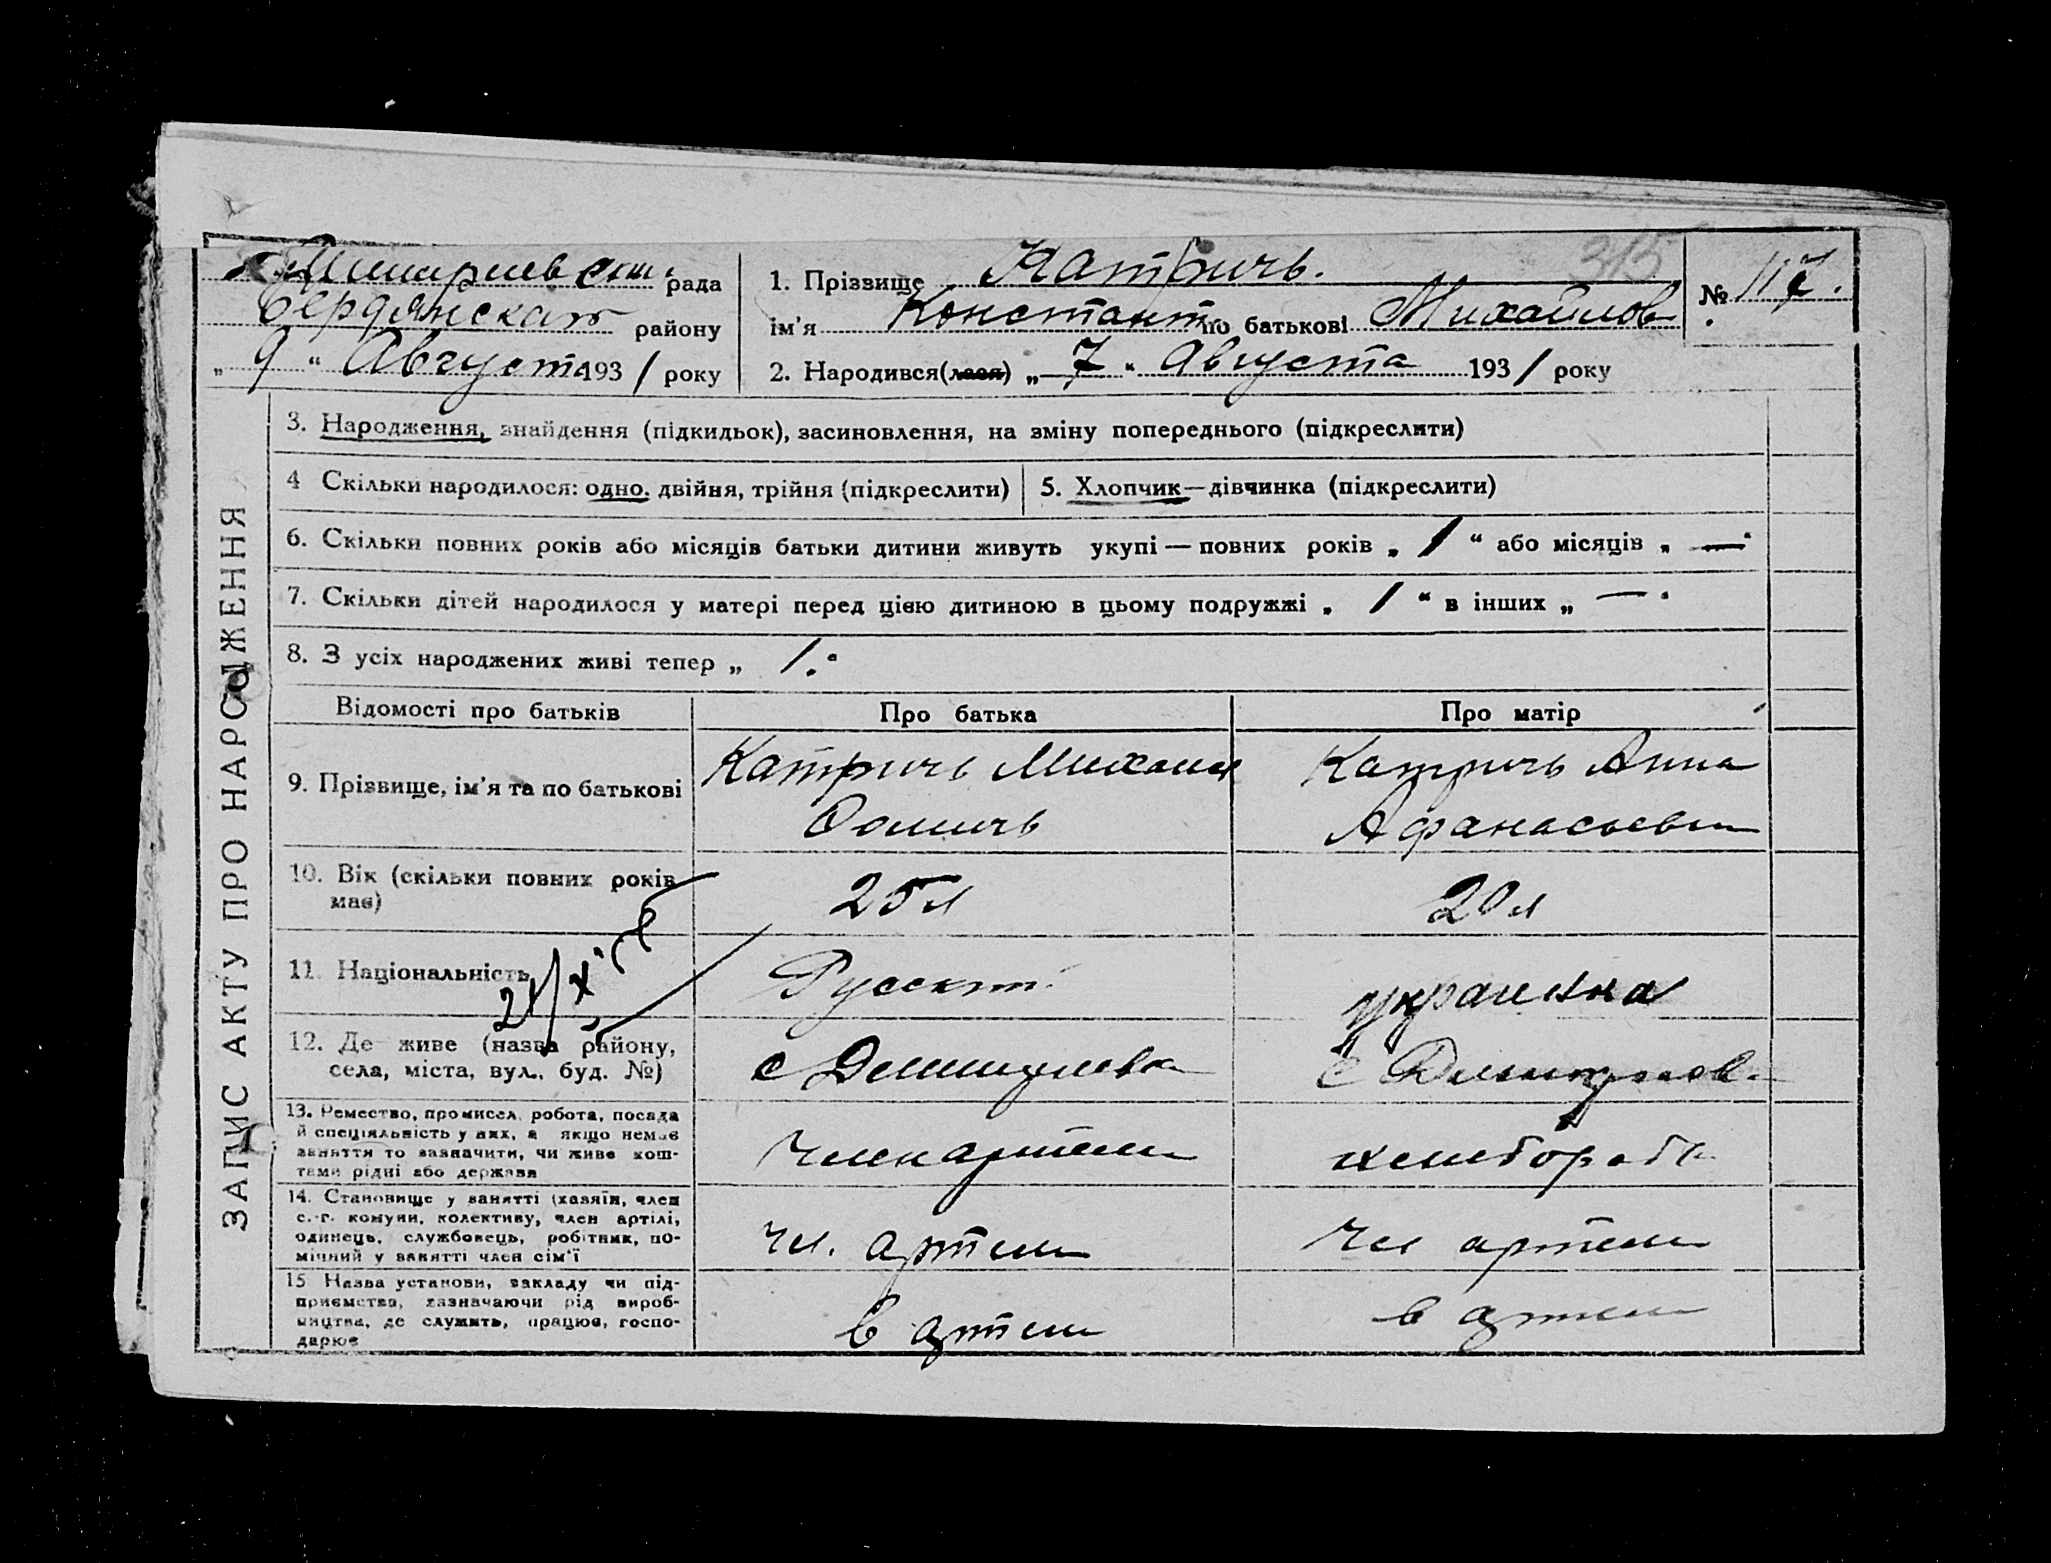 рада
Бердянскаго району
„ 9 “ Августа 1931 року
1. Прізвище Катричь.
315
№ 117.
ім'я Константин по батькові Михайлов
2. Народився(лася) „ 7 “ Августа 1931 року
ЗАПИС АКТУ ПРО НАРОДЖЕННЯ
3. Народження, знайдення (підкидьок), засиновлення, на зміну попереднього (підкреслити)
4 Скільки народилося: одно, двійня, трійня (підкреслити)
5. Хлопчик—дівчинка (підкреслити)
6. Скільки повних років або місяців батьки дитини живуть укупі — повних років „ 1 “ або місяців „ — “
7. Скільки дітей народилося у матері перед цією дитиною в цьому подружжі „ 1 “ в інших „ — “
8. З усіх народжених живі тепер „ 1. “
Відомості про батьків
Про батька
Про матір
9. Прізвище, ім'я та по батькові
Катричь Михаил
Фомичь
Катричь Анна
Афанасьевна
10. Вік (скільки повних років
має)
25 л
20 л
11. Національність
21/X
Русский
украинка
12. Де живе (назва району,
села, міста, вул., буд. №)
с
с
13. Ремество, промисел, робота, посада
й спеціяльність у них, а якщо немає
заняття то зазначити, чи живе кош-
тами рідні або держави
член артели
хлебороб
14. Становище у занятті (хазяїн, член
с.-г. комуни, колективу, член артілі,
одинець, службовець, робітник, по-
мічний у занятті член сім'ї
чл. артели
чл артели
15 Назва установи, закладу чи під-
приємства, зазначаючи рід вироб-
ництва, де служить, працює, госпо-
дарює
в артели
в артели